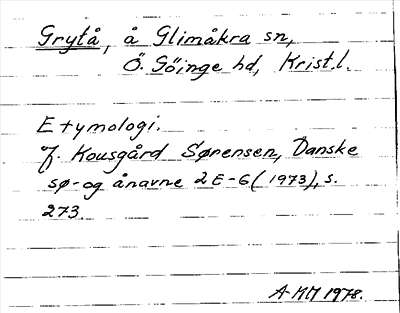 Grytå, å Glimåkra sn,
Ö. Göinge hd, Krist.l.
Etymologi.
Jf. Kousgård Sørensen, Danske
sø- og ånavne 2 E-G (1973), s.
273.
A-KM 1978.